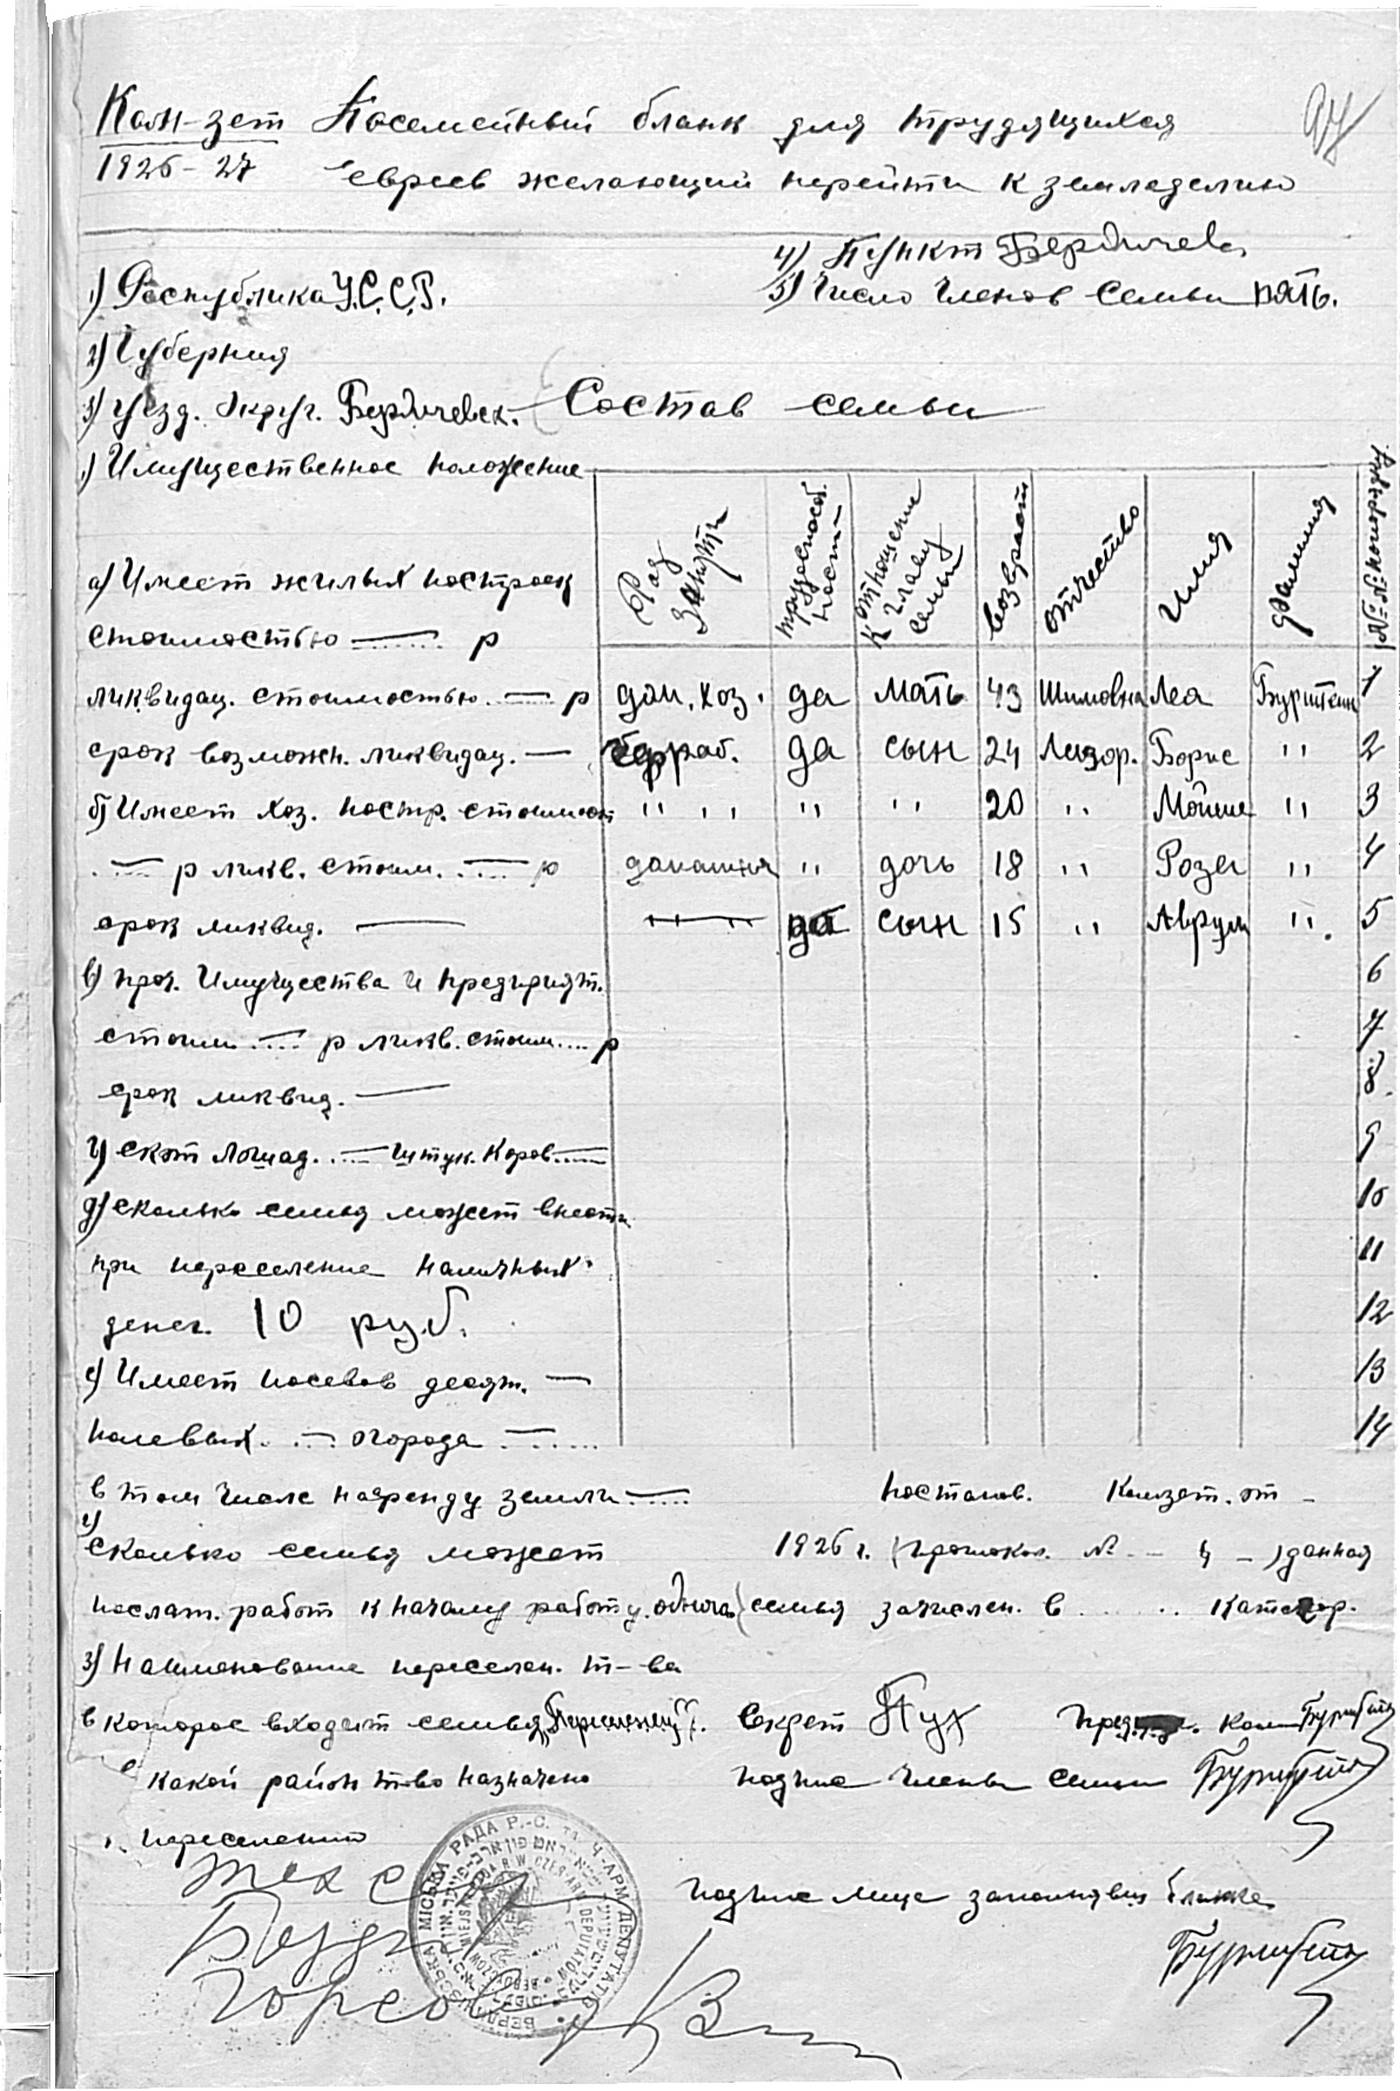 Ком-зет Посемейный бланк для трудящихся
1926-27 евреев желающий перейти к земледелию
97
1) Республика У.С.С.Р.
4) Пункт Бердичев
5) Число членов семьи пять.
2) Губерния
3) уезд. округ. Бердичевск.
Состав семьи
1) Имущественное положение
Род занят. трудоспособ. ност- отношение к главу семьи возвраст отчество имия фамилия №№ по порядку
а) Имеет жилых построек
стоимостью — р
ликвидац. стоимостью — р
дом. хоз. да мать 43 Шимовна Леа 1
срок возможн. ликвидац. —
раб. да сын 24 Лизор. Борис " 2
б) Имеет хоз. постр. стоимост
" " " " 20 " Мойше " 3
— р ликв. стоим. — р
домашняя " дочь 18 " Роза " 4
срок ликвид. —
да сын 15 " Аврум " 5
в) проч. Имущества и предприят.
6
стоим — р ликв. стоим.... р
7
срок ликвид. —
8
г) скот лошад. — штук. коров —
9
д) сколько семья может внести
10
при переселение наличных
11
денег. 10 руб.
12
е) Имеет посевов десят. —
13
полевых. — огорода —
14
в том числе на аренду земли —
Постанов. Комзет. от -
сколько семья может
1926 г. (протокол. № - 4 -) данная
послат. работ к началу работу. одного
семья зачислен. в ..... категор.
з) Наименование переселен. т-ва
в которое входит семья
Секрет Пух Пред. ком
в какой район т-во назначено
подпис члены семьи
переселению
подпис лица заполнявш бланка
МІСЬКА РАДА Р.-С. та Ч-АРМ ДЕПУТАТІВ